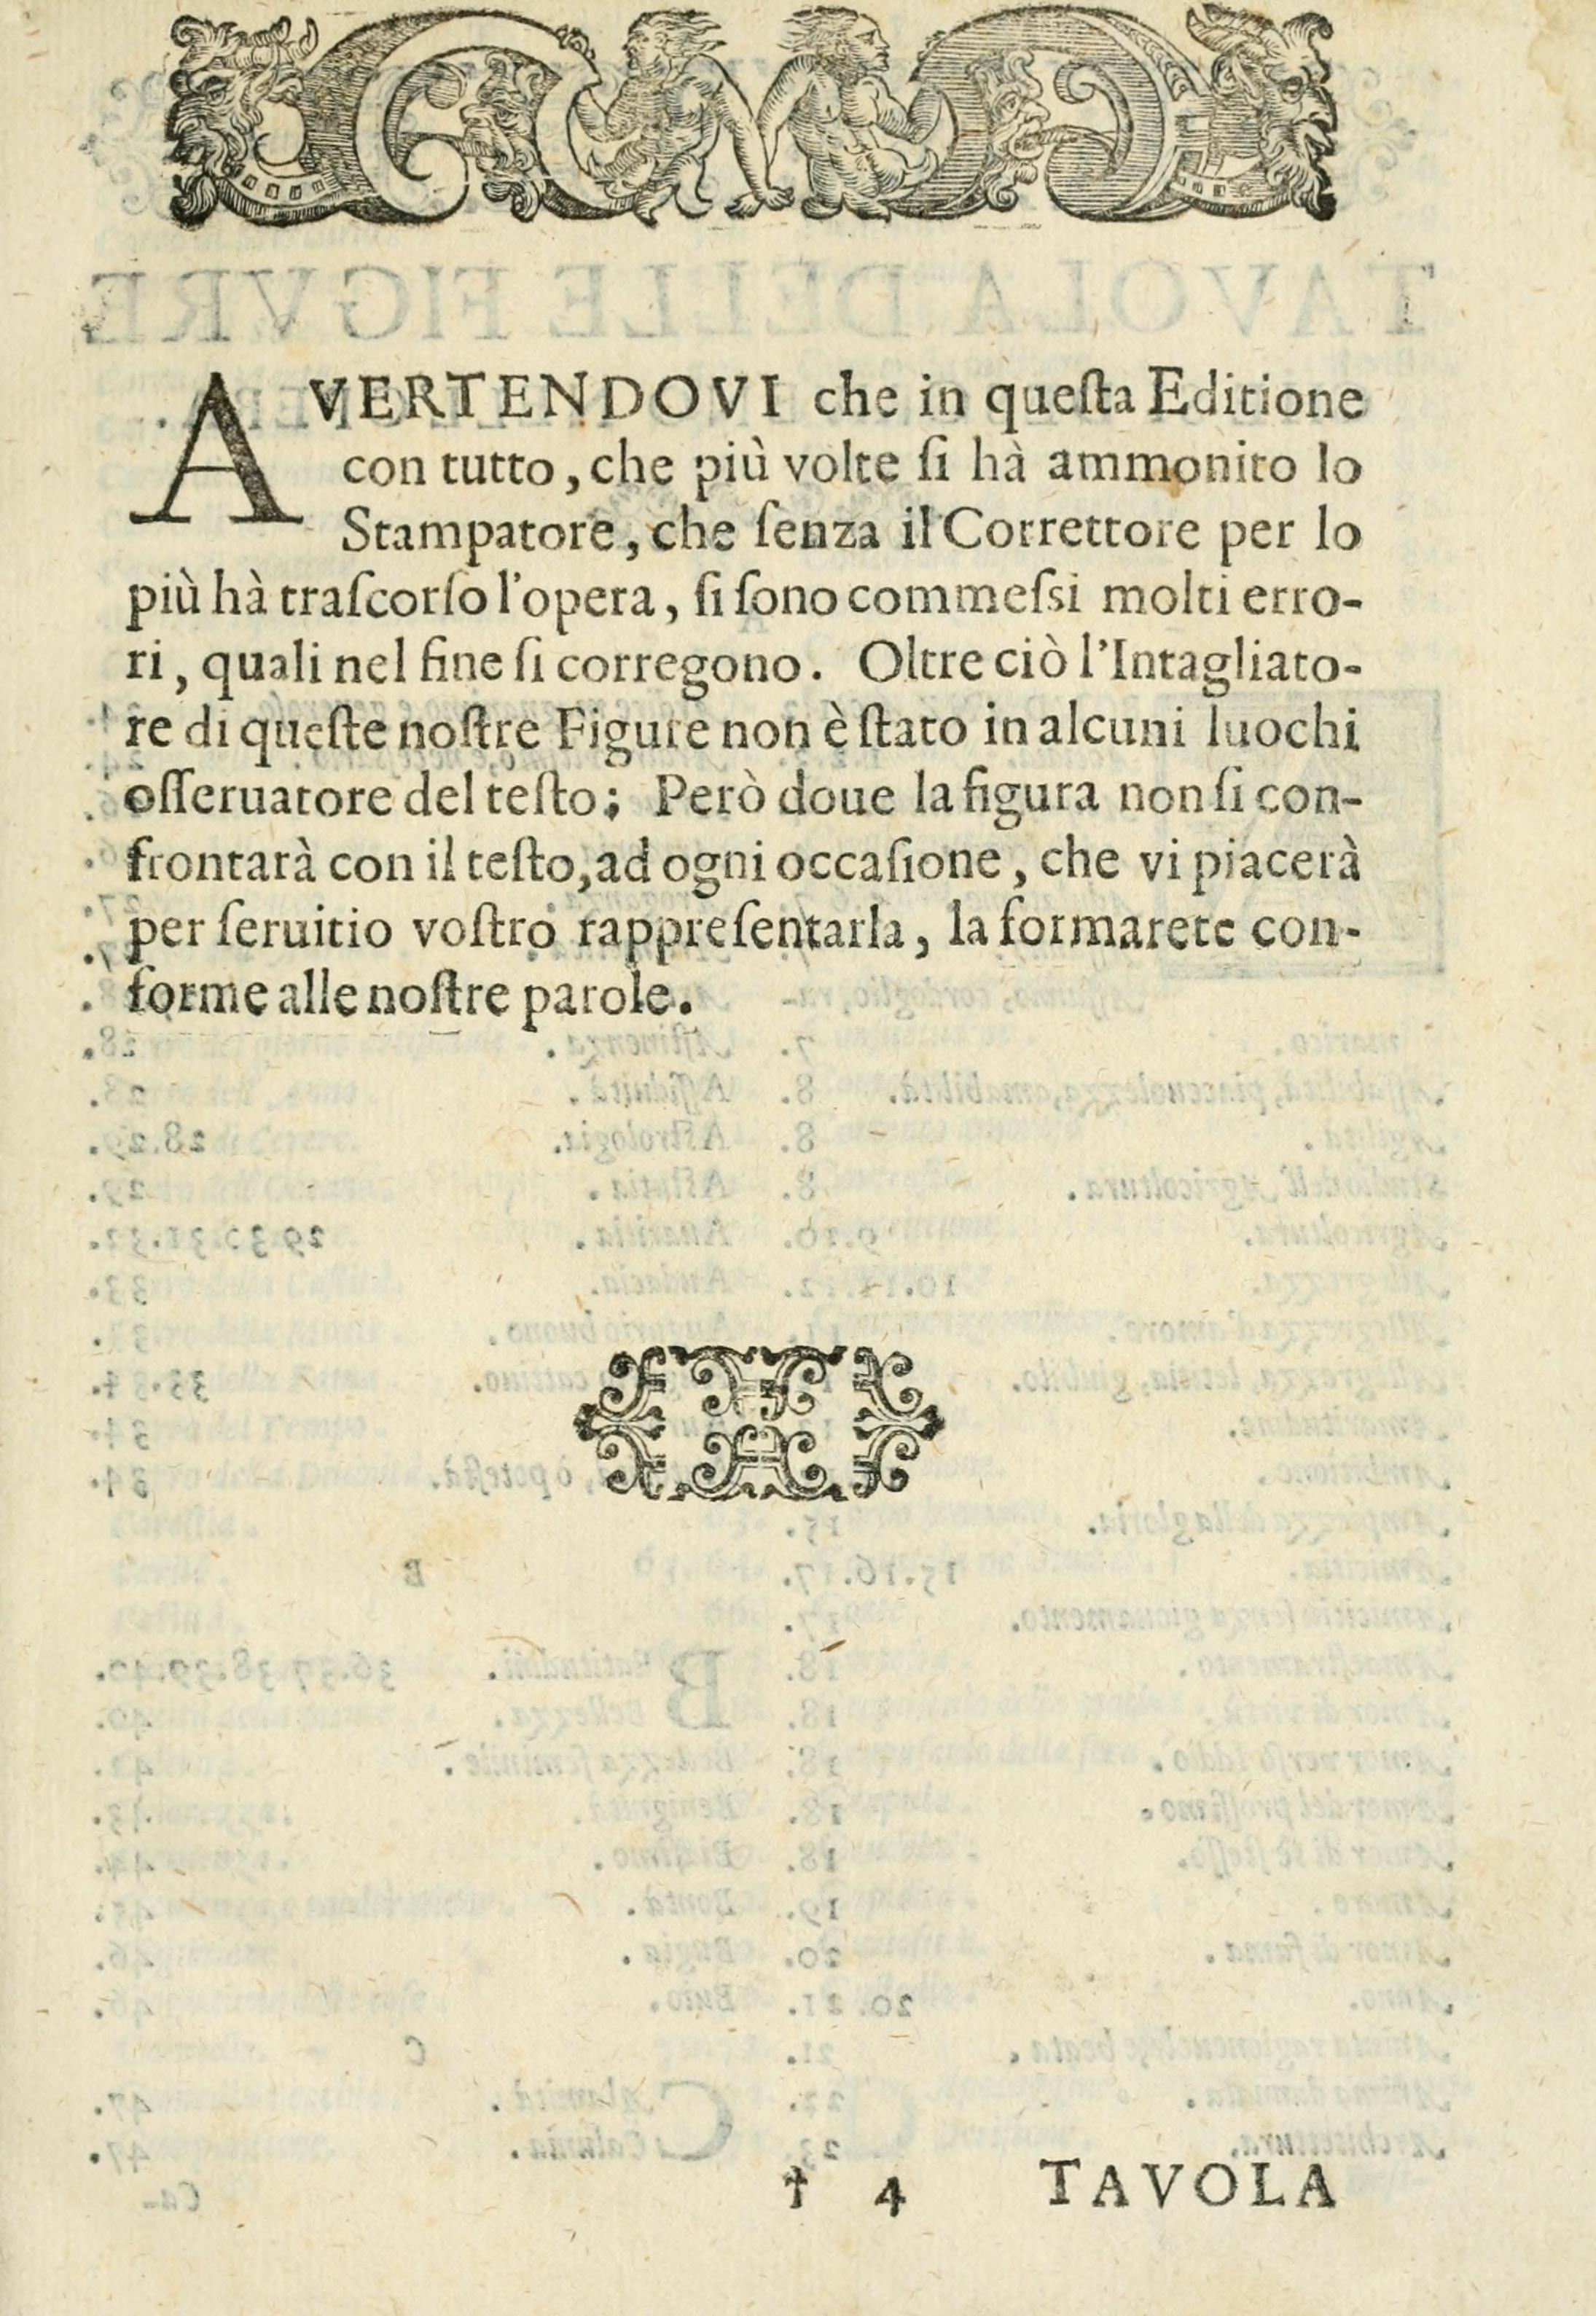 AVERTENDOVI che in queſta Editione
con tutto, che più volte ſi hà ammonito lo
Stampatore, che ſenza il Correttore per lo
più hà traſcorſo l'opera, ſi ſono commeſsi molti erro-
ri, quali nel fine ſi corregono. Oltre ciò l'Intagliato-
re di queſte noſtre Figure non è ſtato in alcuni luochi
oſſeruatore del teſto; Però doue la figura non ſi con-
frontarà con il teſto, ad ogni occaſione, che vi piacerà
per ſeruitio voſtro rappreſentarla, la formarete con-
forme alle noſtre parole.
† 4 TAVOLA